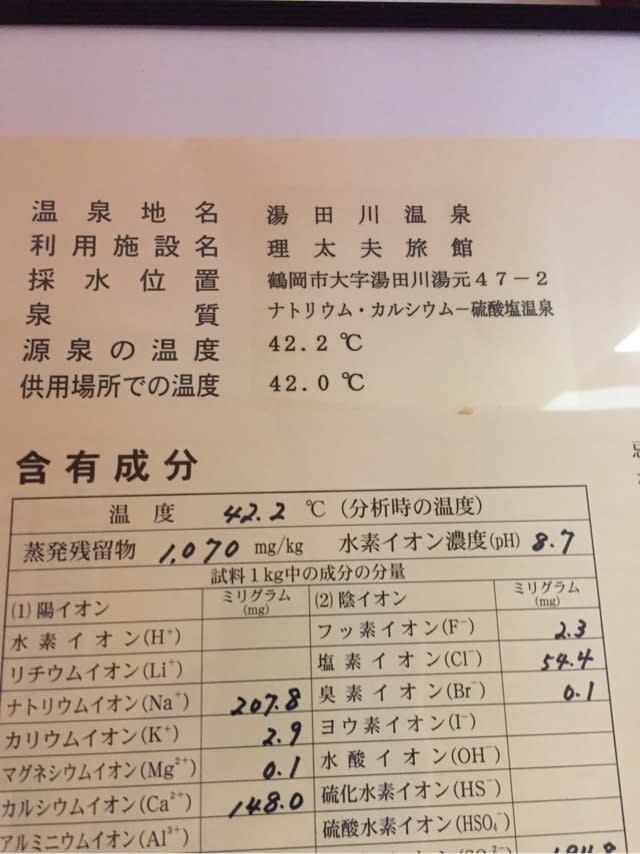 温泉地名 湯田川温泉
利用施設名 理太夫旅館
採水位置 鶴岡市大字湯田川湯元47-2
泉質 ナトリウム・カルシウム-硫酸塩温泉
源泉の温度 42.2℃
供用場所での温度 42.0℃
含有成分
温度 42.2 ℃(分析時の温度)
蒸発残留物 1,070 mg/kg 水素イオン濃度(pH) 8.7
試料1kg中の成分の分量
(1)陽イオン ミリグラム(mg) (2)陰イオン ミリグラム(mg)
水素イオン(H⁺) フッ素イオン(F⁻) 2.3
リチウムイオン(Li⁺) 塩素イオン(Cl⁻) 54.4
ナトリウムイオン(Na⁺) 207.8 臭素イオン(Br⁻) 0.1
カリウムイオン(K⁺) 2.9 ヨウ素イオン(I⁻)
マグネシウムイオン(Mg²⁺) 0.1 水酸イオン(OH⁻)
カルシウムイオン(Ca²⁺) 148.0 硫化水素イオン(HS⁻)
アルミニウムイオン(Al³⁺) 硫酸水素イオン(HSO₄⁻)